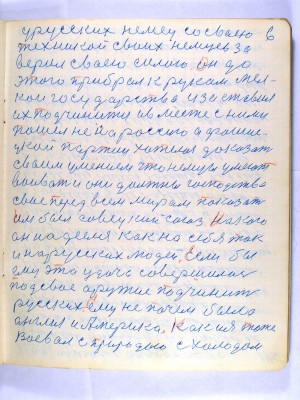 у русских немец со своею 6
техникой своих немцев за
верил своею силою он до
этого прибрал к рукам мел-
кои государства и заставил
их подчинитя и вместе с ними
пошел не на россию а фаши-
цкой партии хотел доказат
своим умением что немцы умеют
воеват и они должны господства
свое перед всем мирам показат
им был советский союз
ан надеялся как на себя так
и на русских людей, Если бы
ему это удась совершилас
под свое оружие подчинит
русских ему не почем была
англия и Америка, Как ия тоже
воевал с природою с холодом